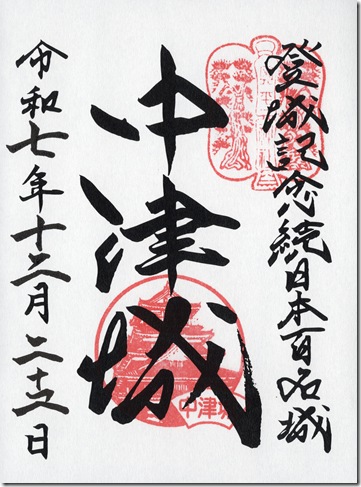 登城記念続日本百名城
中津城
中津城
令和七年十二月二十二日